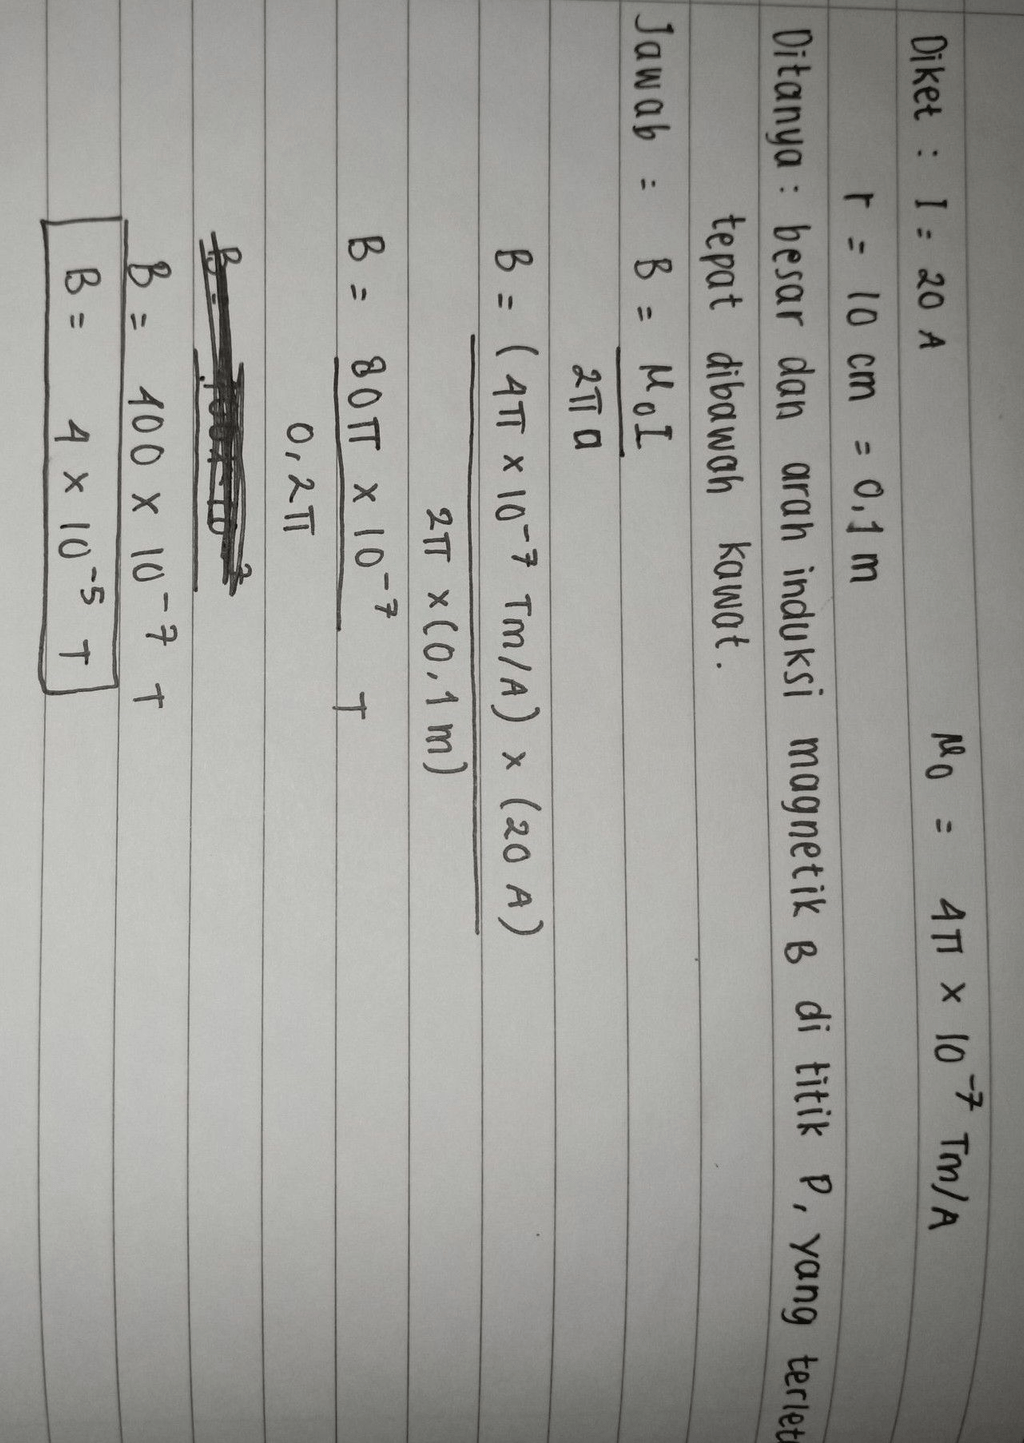 Diket : I = 20 A μ₀ = 4π × 10⁻⁷ Tm/A
r = 10 cm = 0,1 m
Ditanya : besar dan arah induksi magnetik B di titik P, yang terlet
tepat dibawah kawat.
Jawab = B = μ₀I
2πa
B = (4π × 10⁻⁷ Tm/A) × (20 A)
2π × (0,1 m)
B = 80π × 10⁻⁷ T
0,2π
B = 400 × 10⁻⁷ T
B = 4 × 10⁻⁵ T